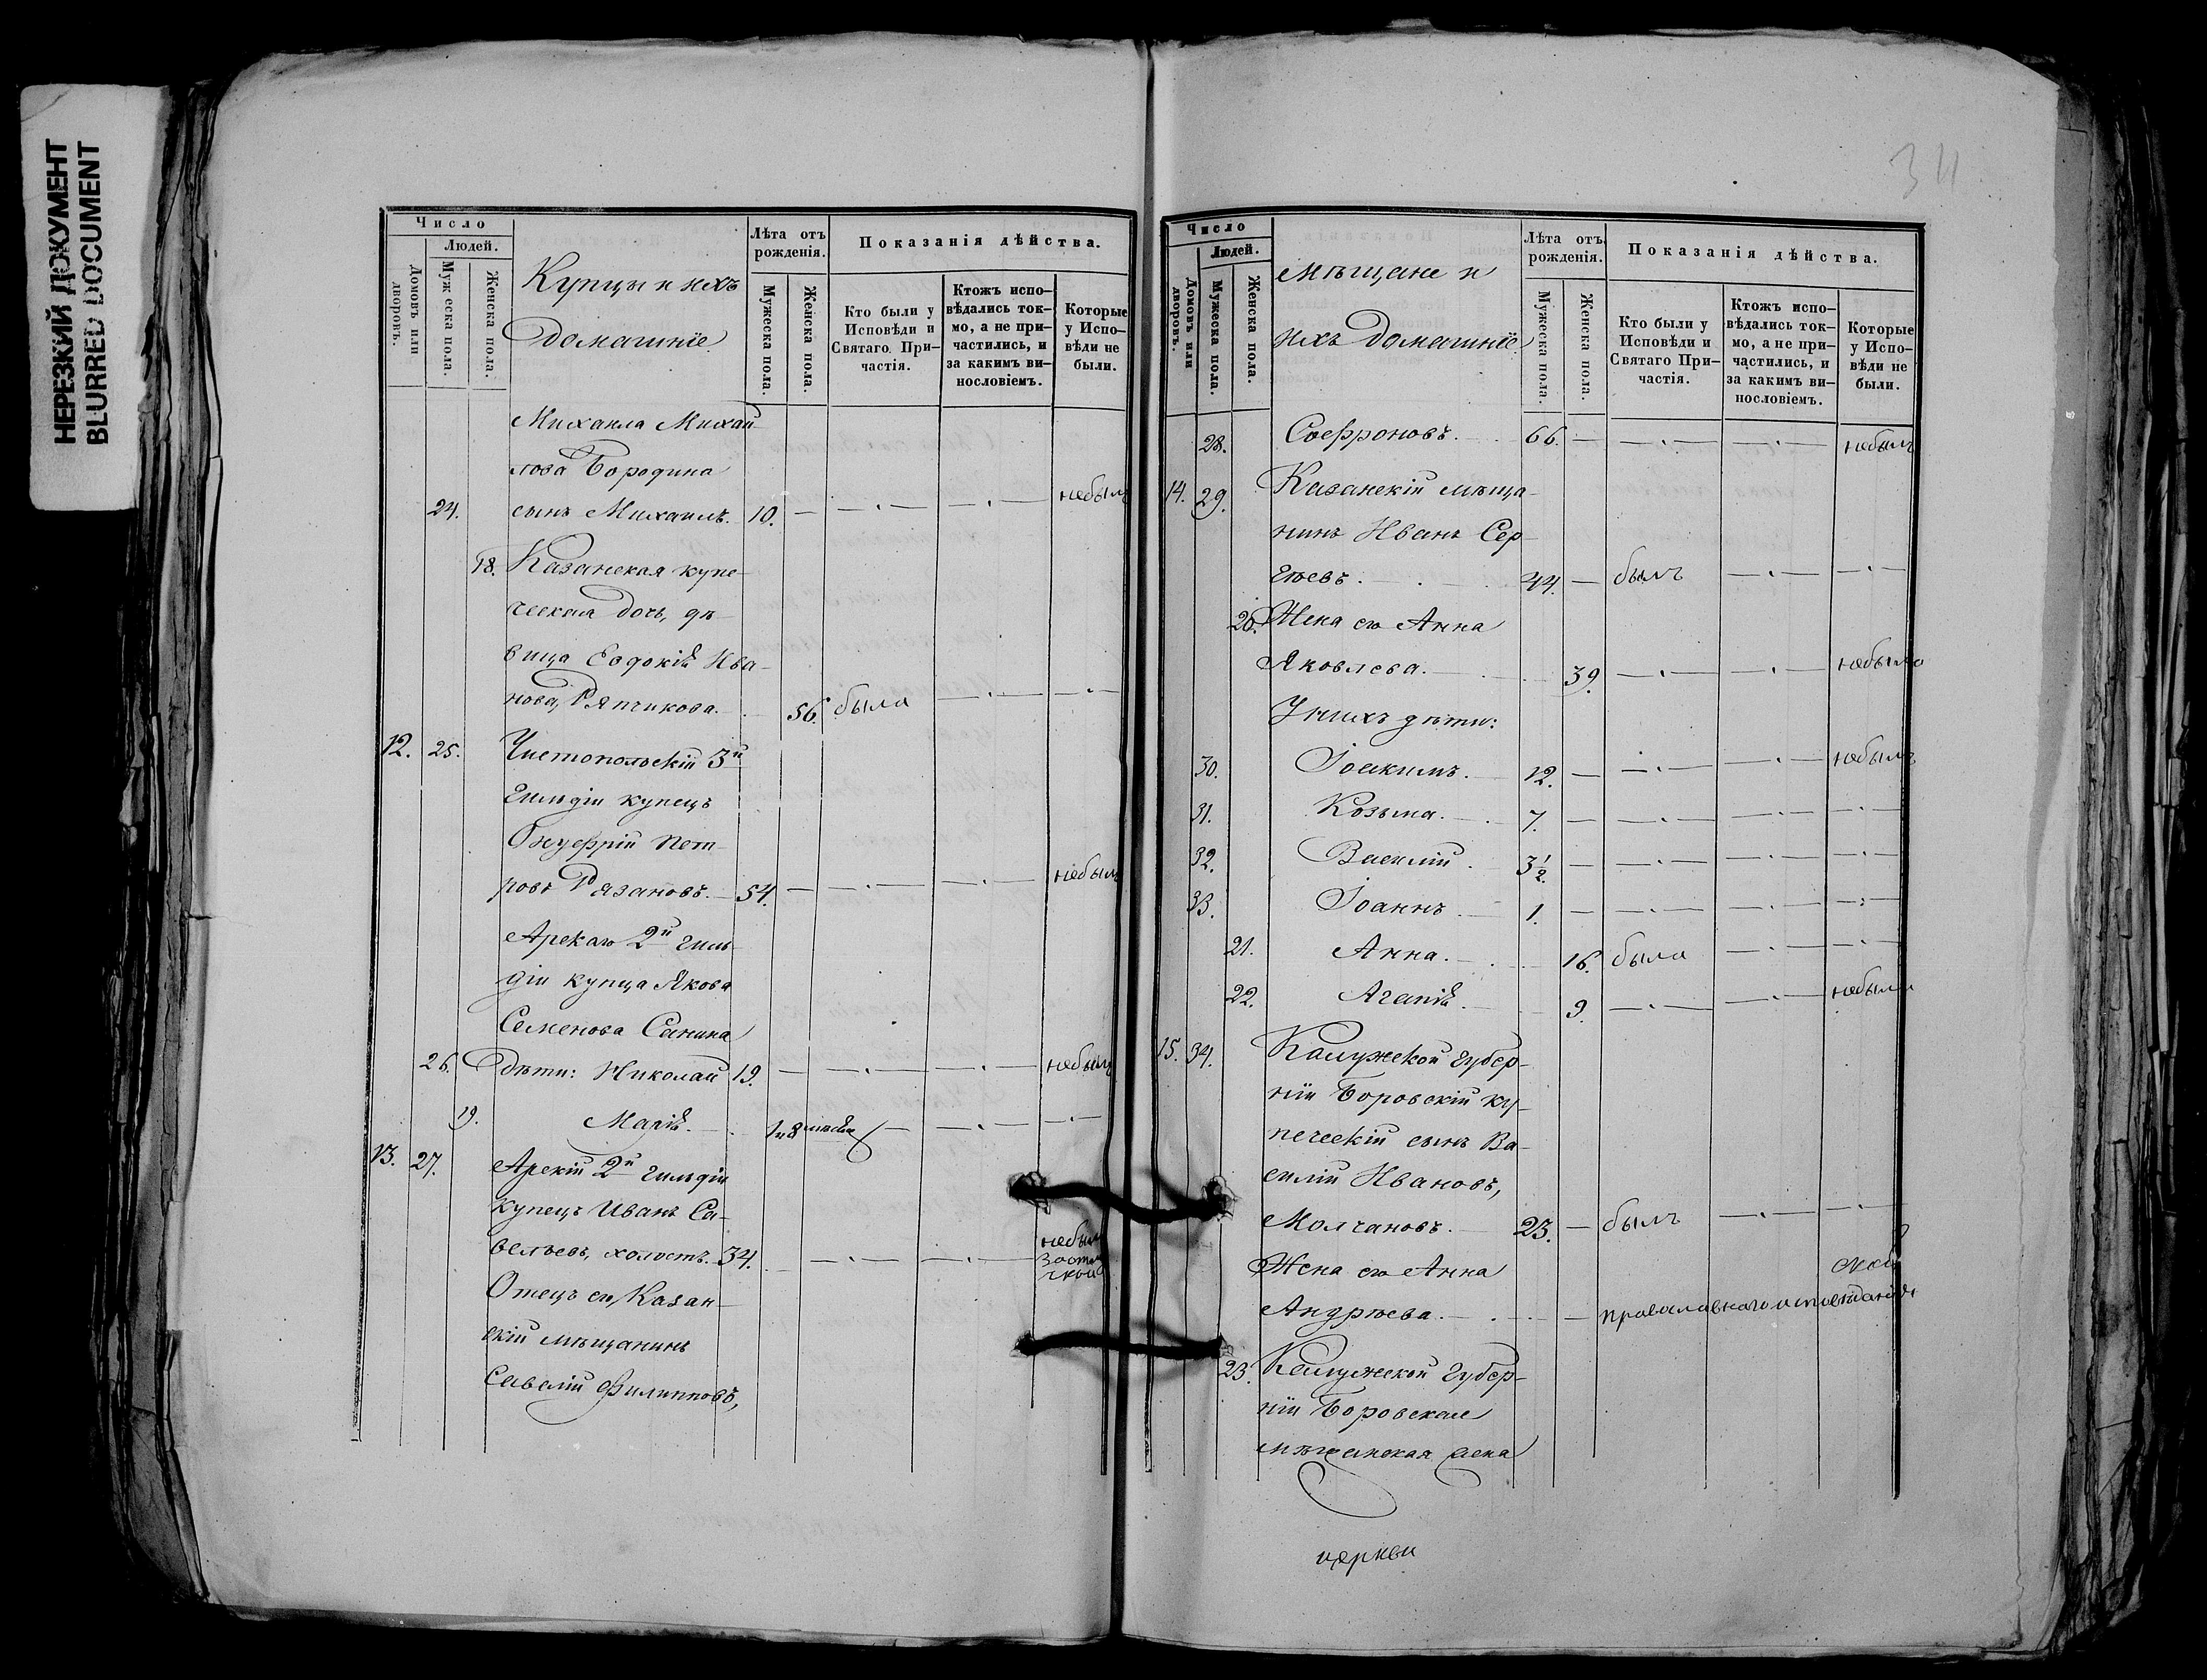 НЕРЕЗКИЙ ДОКУМЕНТ
BLURRED DOCUMENT
Число
Людей.
Домовъ или дворовъ.
Мужеска пола.
Женска пола.
Купцы и ихъ
домашніе.
Лѣта отъ рожденія.
Мужеска пола.
Женска пола.
Показанія дѣйства.
Кто были у Исповѣди и Святаго При-
частія.
Ктожъ испо-
вѣдались ток-
мо, а не при-
частились, и
за какимъ ви-
нословіемъ.
Которые
у Испо-
вѣди не
были.
Михаила Михай-
лова Бородина
24. сынъ Михаилъ. 10. — —.— —.— небылъ
18. Казанская купе-
ческая дочь, дѣ-
вица Евдокія Ива-
нова, Ряпчикова. 56. была —.— —.—
12. 25. Чистопольскій 3й
гильдіи купецъ
Онуфрій Пет-
ровъ Рязановъ. 54. — —.— —.— небылъ
Арскаго 2й гиль-
діи купца Якова
Семенова Санина
26. Дѣти: Николай 19. — —.— —.— небылъ
19. Марія. 1 и 8 — —.— —.—
13. 27. Арскій 2й гильдіи
купецъ Иванъ Са-
вельевъ, холостъ. 34. —.— —.— небылъ
Отецъ его, Казан-
скій мѣщанинъ
Савелій Филипповъ,
34
Число
Людей.
Домовъ или дворовъ.
Мужеска пола.
Женска пола.
Мѣщане и
ихъ домашніе.
Лѣта отъ рожденія.
Мужеска пола.
Женска пола.
Показанія дѣйства.
Кто были у
Исповѣди и
Святаго При-
частія.
Ктожъ испо-
вѣдались ток-
мо, а не при-
частились, и
за какимъ ви-
нословіемъ.
Которые
у Испо-
вѣди не
были.
28. Софроновъ. 66. — —.— —.— небылъ
14. 29. Казанскій мѣща-
нинъ Иванъ Сер-
гѣевъ. 44. — былъ —.— —.—
20. Жена его Анна
Яковлева. 39. —.— —.— небыла
У нихъ дѣти:
30. Іоакимъ. 12. — —.— —.— небылъ
31. Козьма. 7. — —.— —.— —.—
32. Василій. 3½. — —.— —.— —.—
33. Іоаннъ. 1. — —.— —.— —.—
21. Анна. 16. была —.— —.—
22. Агапія. 9. —.— —.— небыла
15. 34. Калужской губер-
ніи Боровскій ку-
печескій сынъ Ва-
силій Ивановъ,
Молчановъ. 23. — былъ —.— —.—
Жена его Анна
Андрѣева. — православнаго исповѣданія
23. Калужской губер-
ніи Боровская
мѣщанская жена
церкви